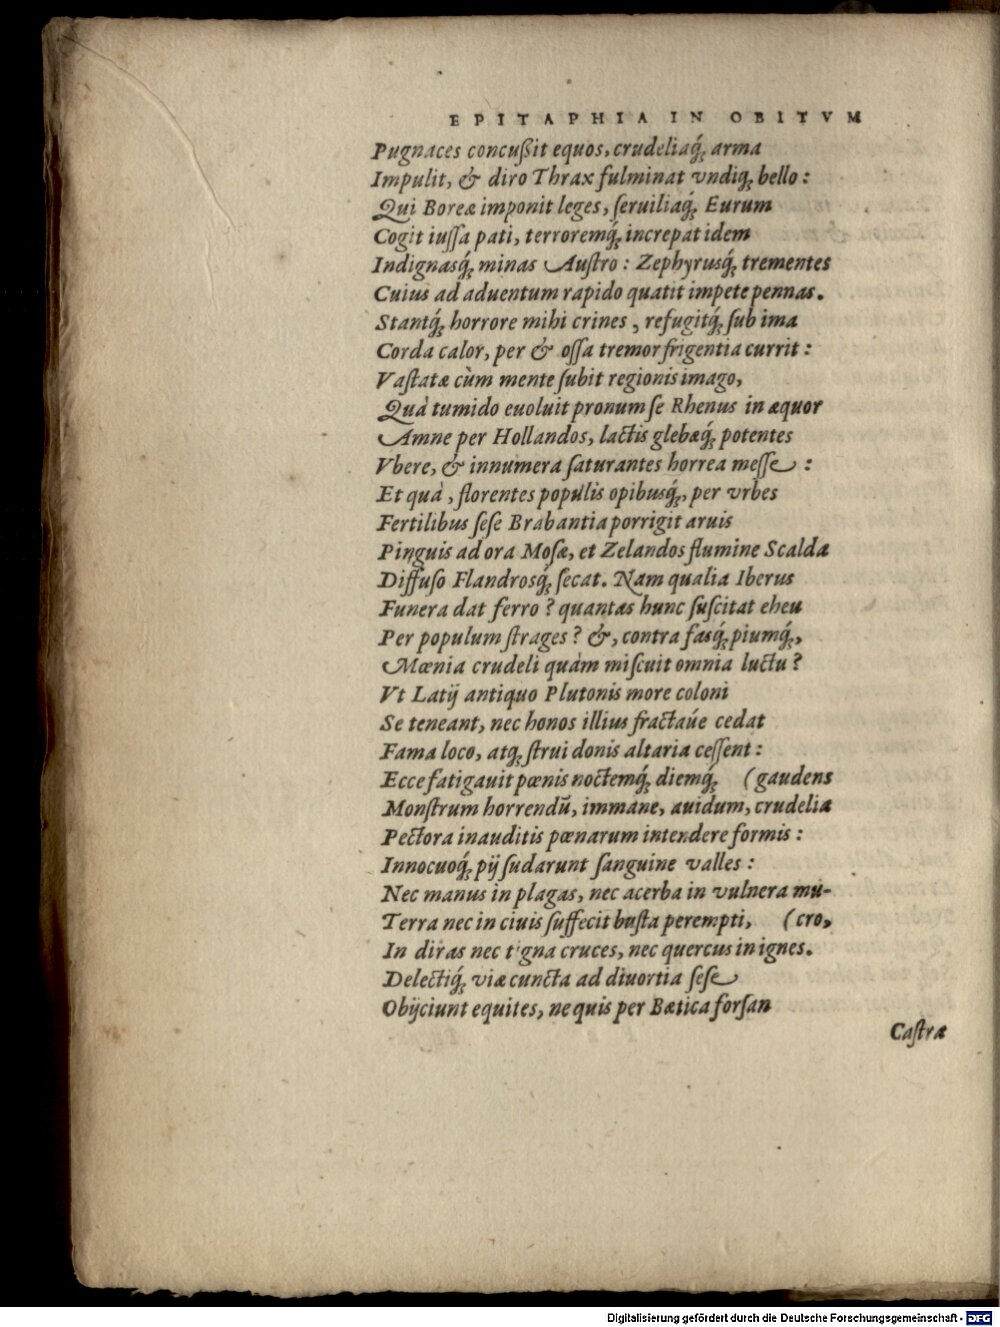 EPITAPHIA IN OBITVM
Pugnaces concußit equos, crudeliaq́; arma
Impulit, & diro Thrax fulminat vndiq; bello :
Qui Boreæ imponit leges, ſeruiliaq́; Eurum
Cogit iuſſa pati, terroremq́; increpat idem
Indignasq́; minas Auſtro : Zephyrusq́; trementes
Cuius ad aduentum rapido quatit impete pennas.
Stantq́; horrore mihi crines , refugitq́; ſub ima
Corda calor, per & oſſa tremor frigentia currit :
Vaſtatæ cùm mente ſubit regionis imago,
Quà tumido euoluit pronum ſe Rhenus in æquor
Amne per Hollandos, lactis glebæq́; potentes
Vbere, & innumera ſaturantes horrea meſſe :
Et quà , florentes populis opibusq́;, per vrbes
Fertilibus ſeſe Brabantia porrigit aruis
Pinguis ad ora Moſæ, et Zelandos flumine Scalda
Diffuſo Flandrosq́; ſecat. Nam qualia Iberus
Funera dat ferro ? quantas hunc ſuſcitat eheu
Per populum ſtrages ? &, contra fasq́; piumq́;,
Mœnia crudeli quàm miſcuit omnia luctu ?
Vt Latij antiquo Plutonis more coloni
Se teneant, nec honos illius fractaúe cedat
Fama loco, atq; ſtrui donis altaria ceſſent :
Ecce fatigauit pœnis noctemq́; diemq́; (gaudens
Monſtrum horrendū, immane, auidum, crudelia
Pectora inauditis pœnarum intendere formis :
Innocuoq́; pij ſudarunt ſanguine valles :
Nec manus in plagas, nec acerba in vulnera mu-
Terra nec in ciuis ſuffecit buſta perempti, (cro,
In diras nec tigna cruces, nec quercus in ignes.
Delectiq́; viæ cuncta ad diuortia ſeſe
Obijciunt equites, ne quis per Bætica forſan
Caſtra
Digitalisierung gefördert durch die Deutsche Forschungsgemeinschaft - DFG